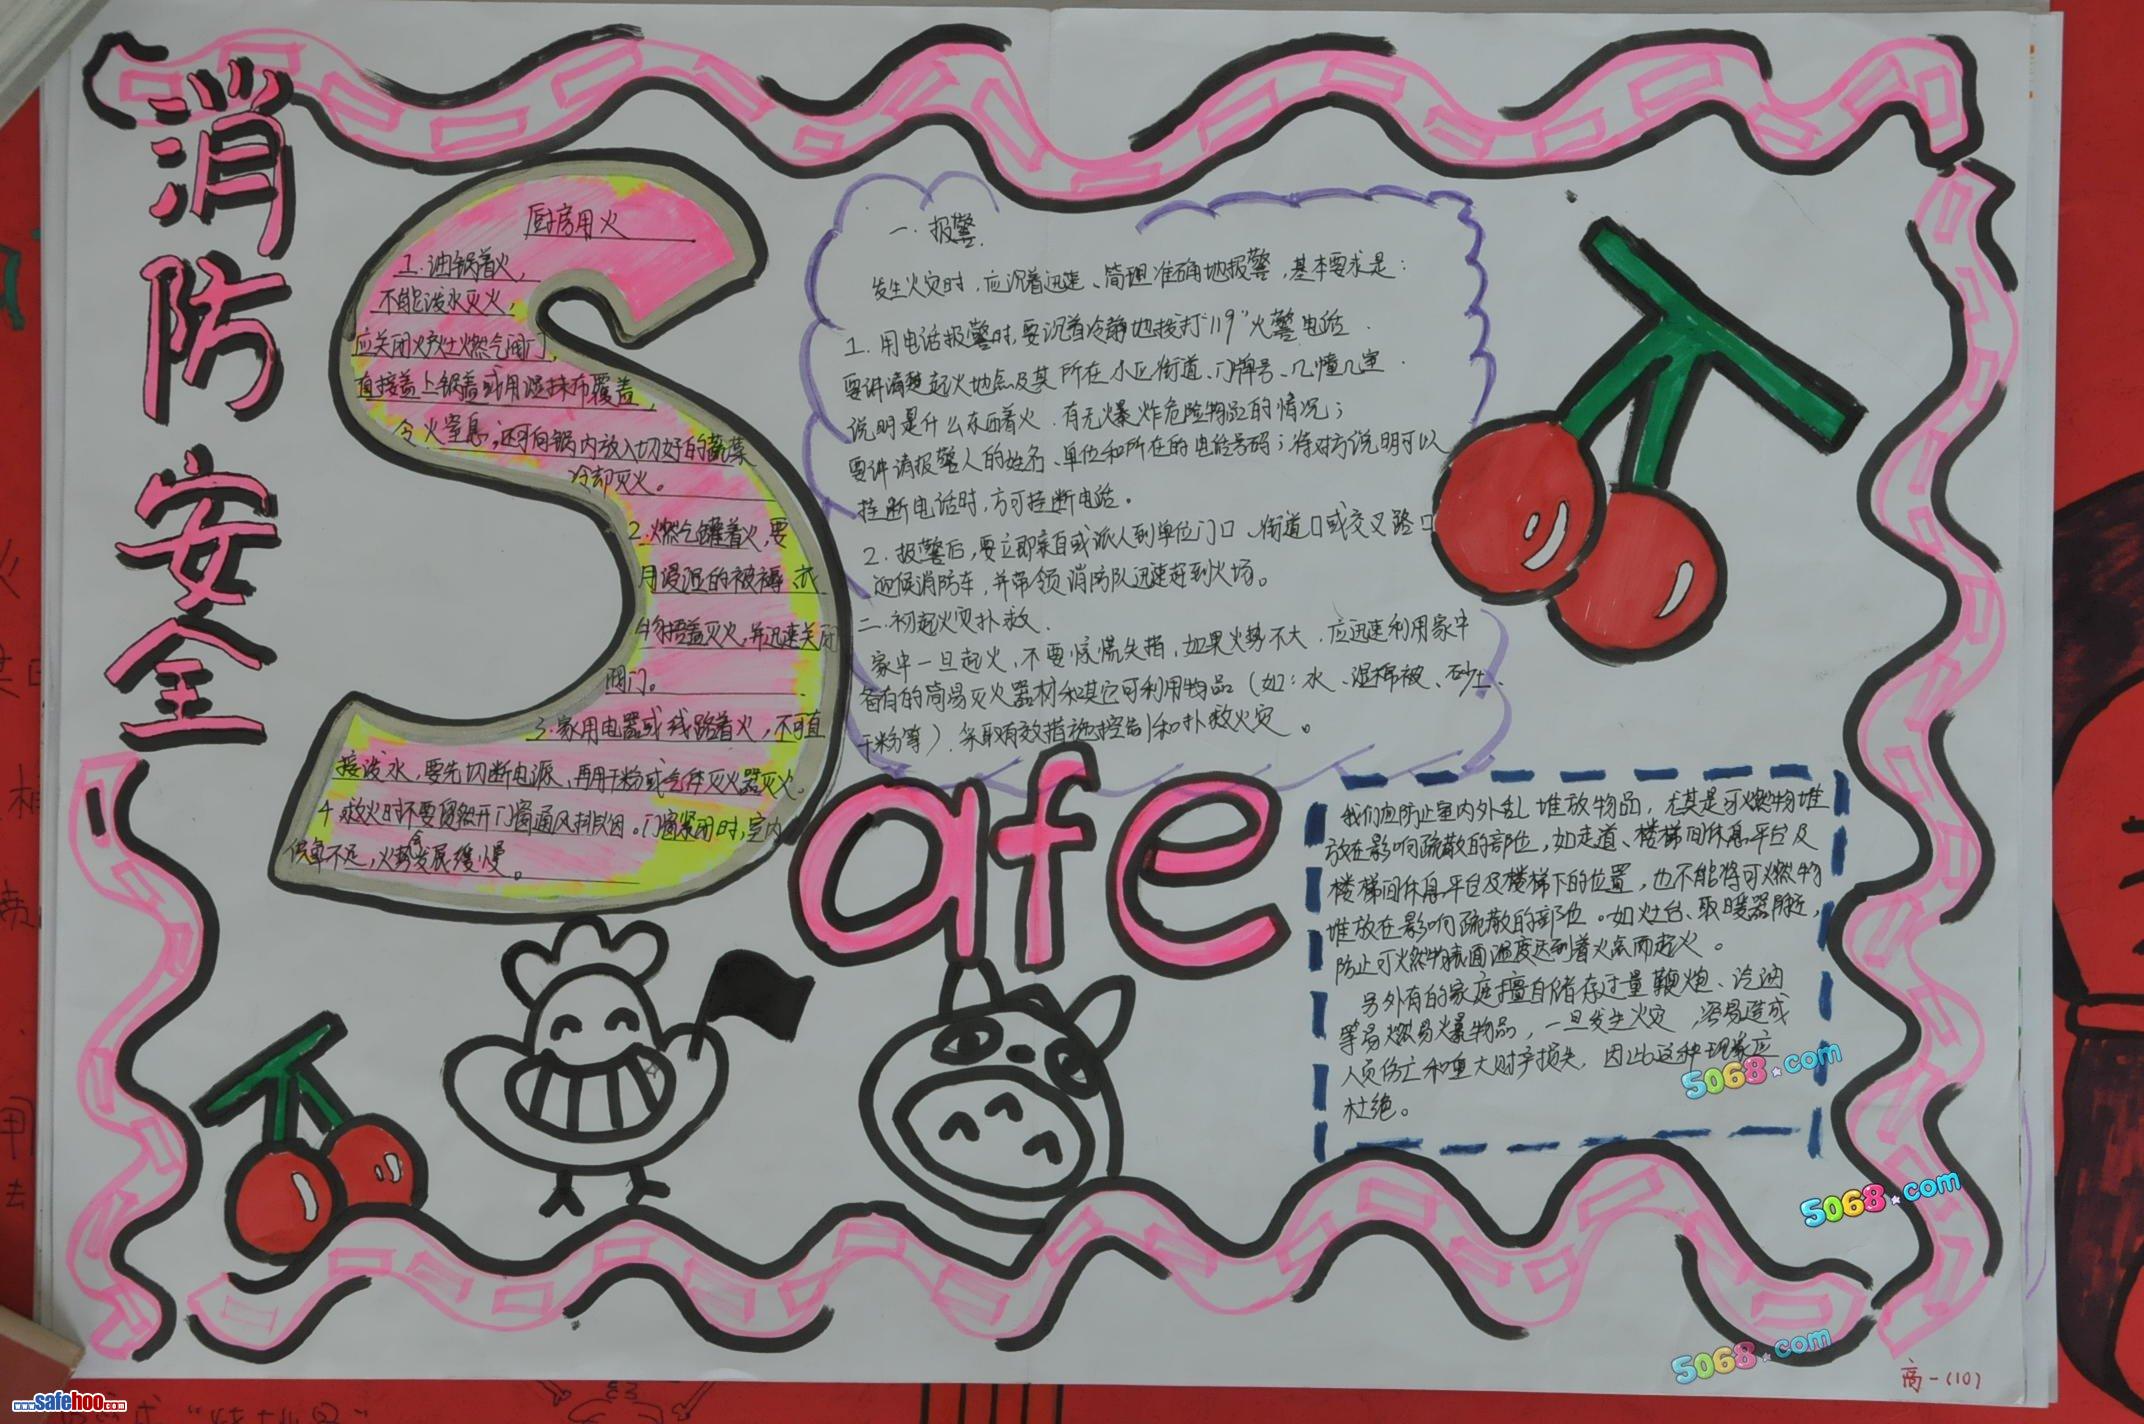 消防安全
Safe
厨房用火
1.油锅着火,
不能泼水灭火,
应关闭炉灶燃气阀门,
直接盖上锅盖或用湿抹布覆盖,
令火窒息,还可向锅内放入切好的蔬菜
冷却灭火。
2.燃气罐着火,要
用浸湿的被褥、衣
物捂盖灭火,并迅速关闭
阀门。
3.家用电器或线路着火,不可直
接泼水,要先切断电源,再用干粉或气体灭火器灭火。
4.救火时不要贸然开门窗通风排烟。门窗紧闭时,室内
供单不足,火势会发展缓慢。
一.报警.
发生火灾时,应沉着迅速、简理准确地报警,基本要求是:
1.用电话报警时,要沉着冷静地拨打"119"火警电话.
要讲清楚起火地点及其所在小区街道、门牌号、几幢几室.
说明是什么东西着火.有无爆炸危险物品的情况;
要讲请报警人的姓名、单位和所在的电话号码;待对方说明可以
挂断电话时,方可挂断电话。
2.报警后,要立即亲自或派人到单位门口、街道口或交叉路口
迎候消防车,并带领消防队迅速赶到火场。
二.初起火灾扑救.
家中一旦起火,不要惊慌失措,如果火势不大,应迅速利用家中
备有的简易灭火器材和其它可利用物品(如:水、湿棉被、砂土、
干粉等),采取有效措施控制和扑救火灾。
我们应防止室内外乱堆放物品,尤其是可燃物堆
放在影响疏散的部位,如走道、楼梯间休息平台及
楼梯间休息平台及楼梯下的位置,也不能将可燃物
堆放在影响疏散的部位。如灶台、取暖器附近,
防止可燃物表面温度达到着火点而起火。
另外有的家庭擅自储存过量鞭炮、汽油
等易燃易爆物品,一旦发生火灾,容易造成
人员伤亡和重大财产损失,因此这种现象应
杜绝。
5068.com
5068.com
5068.com
高一(10)
www.safehoo.com